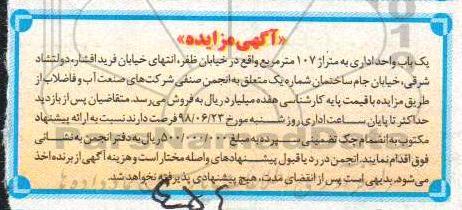 «آگهی مزایده»
یک باب واحد اداری به متراژ ۱۰۷ مترمربع واقع در خیابان ظفر، انتهای خیابان فرید افشار، دولتشاد
شرقی، خیابان جام ساختمان شماره یک متعلق به انجمن صنفی شرکت‌های صنعت آب و فاضلاب از
طریق مزایده با قیمت پایه کارشناسی هفده میلیارد ریال به فروش می‌رسد. متقاضیان پس از بازدید
حداکثر تا پایان ساعت اداری روز شنبه مورخ ۹۸/۰۶/۲۳ فرصت دارند نسبت به ارائه پیشنهاد
مکتوب به انضمام چک تضمینی سپرده به مبلغ ۵۰۰/۰۰۰/۰۰۰ ریال به دفتر انجمن به نشانی
فوق اقدام نمایند. انجمن در رد یا قبول پیشنهادهای واصله مختار است و هزینه آگهی از برنده اخذ
می‌شود. بدیهی است پس از انقضای مدت، هیچ پیشنهادی پذیرفته نخواهد شد.